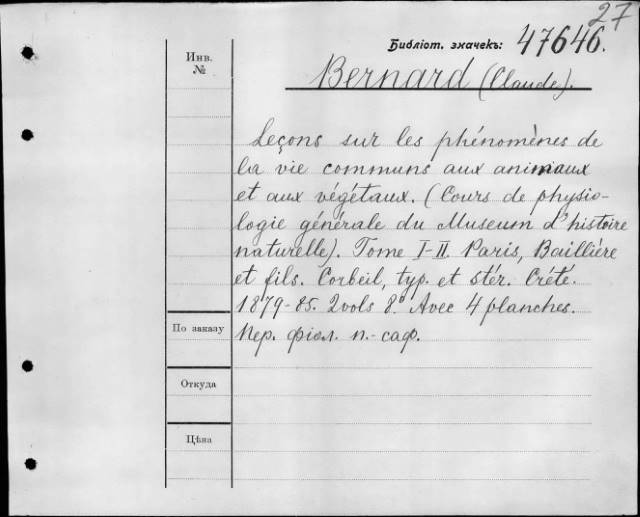 27
Библіот. значекъ: 47646.
Инв.
№
Bernard (Claude).
Leçons sur les phénomènes de
la vie communs aux animaux
et aux végétaux. (Cours de physio-
logie générale du Museum d'histoire
naturelle). Tome I-II. Paris, Baillière
et fils. Corbeil, typ. et stér. Crété.
1879-85. 2 vols 8º. Avec 4 planches.
По заказу
Пер. фіол. п.-саф.
Откуда
Цѣна